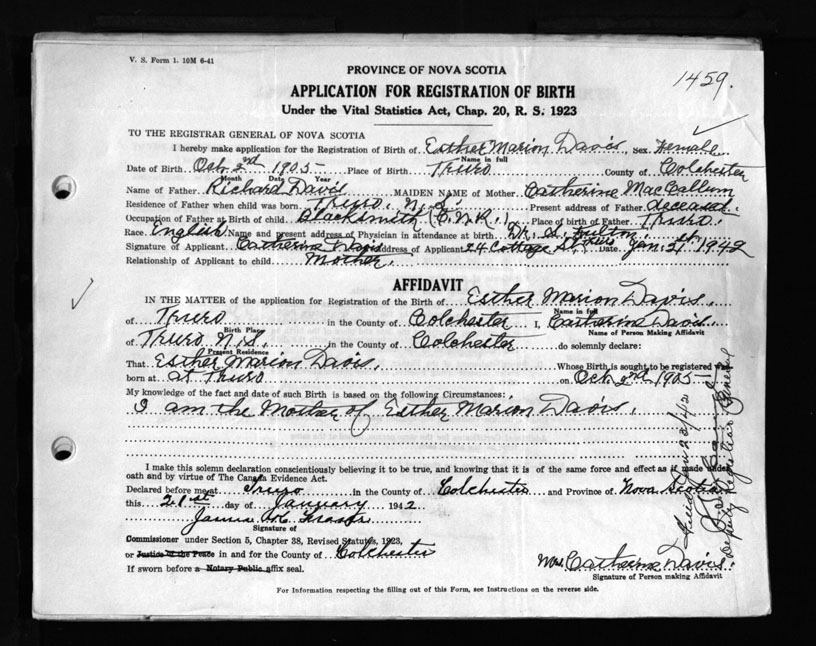 V. S. Form 1. 10M 6-41
1459.
PROVINCE OF NOVA SCOTIA
APPLICATION FOR REGISTRATION OF BIRTH
Under the Vital Statistics Act, Chap. 20, R. S. 1923
TO THE REGISTRAR GENERAL OF NOVA SCOTIA
I hereby make application for the Registration of Birth of Esther Marion Davis, Sex Female
Name in full
Date of Birth Oct 2nd 1905 Place of Birth Truro County of Colchester
Month Date Year
Name of Father Richard Davis MAIDEN NAME of Mother Catherine MacCallum
Residence of Father when child was born Truro, N.S. Present address of Father deceased.
Occupation of Father at Birth of child Blacksmith (C.N.R.) Place of birth of Father Truro.
Race. English Name and present address of Physician in attendance at birth Dr. S. Fulton.
Signature of Applicant Catherine Davis Address of Applicant 24 Cottage St. Date Jan. 21st 1942
Relationship of Applicant to child Mother.
AFFIDAVIT
IN THE MATTER of the application for Registration of the Birth of Esther Marion Davis.
Name in full
of Truro in the County of Colchester I, Catherine Davis
Birth Place Name of Person Making Affidavit
of Truro N.S. in the County of Colchester do solemnly declare:
Present Residence
That Esther Marion Davis. Whose Birth is sought to be registered was
born at at Truro on Oct. 2nd 1905
My knowledge of the fact and date of such Birth is based on the following Circumstances:
I am the Mother of Esther Marion Davis.
I make this solemn declaration conscientiously believing it to be true, and knowing that it is of the same force and effect as if made under
oath and by virtue of The Canada Evidence Act.
Declared before me at Truro in the County of Colchester and Province of Nova Scotia
this 21st day of January 1942
James
Signature of
Commissioner under Section 5, Chapter 38, Revised Statutes, 1923,
or Justice of the Peace in and for the County of Colchester
If sworn before a Notary Public affix seal.
Mrs Catherine Davis.
Signature of Person making Affidavit
For Information respecting the filling out of this Form, see Instructions on the reverse side.
Deputy Registrar General